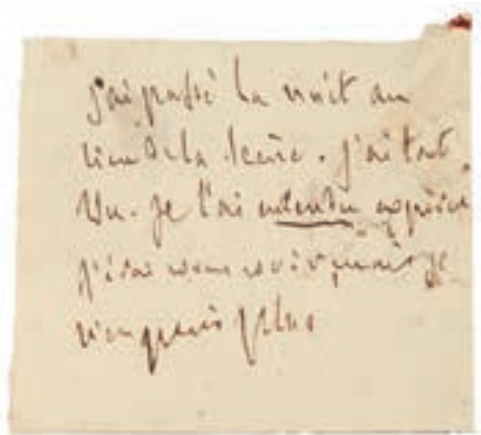 J'ai passé la nuit au
lieu de la scène. J'ai tout
Vu. Je l'ai entendu expirer
j'irai vous voir, mais je
n'en peux plus